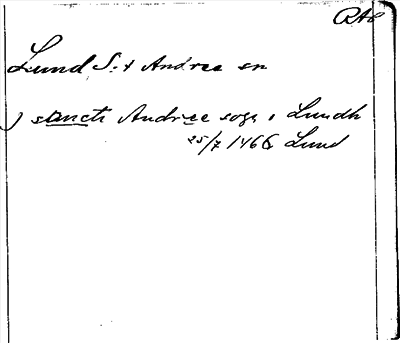 RAP
Lund S:t Andree sn
) sancti Andree sogn i Lundh
25/7 1466 Lund